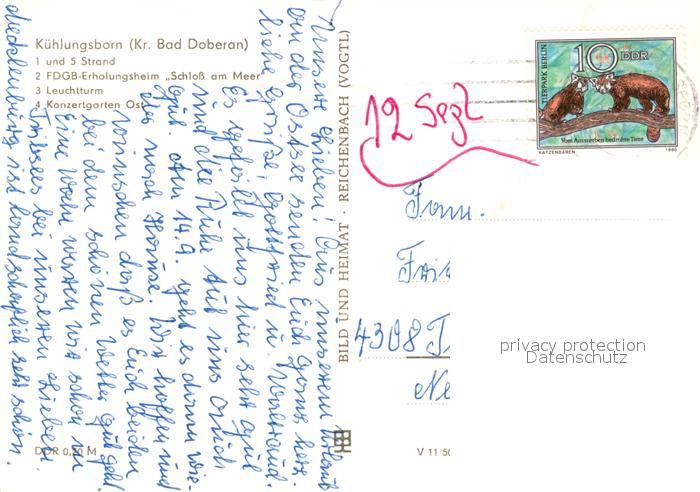 Kühlungsborn (Kr. Bad Doberan)
1 und 5 Strand
2 FDGB-Erholungsheim „Schloß am Meer"
3 Leuchtturm
4 Konzertgarten Ost
Unsere Lieben! Aus unserem Urlaub
an der Ostsee senden Euch ganz herz.
liebe Grüße, Gottfried u.
Es gefällt uns hier sehr gut
und die Ruhe tut uns auch
gut. Am 14.9. geht es dann wie-
der nach Hause. Wir hoffen und
wünschen daß es Euch beiden
bei dem schönen Wetter gut geht.
Eine Woche waren wir schon in
bei unseren Lieben.
Mecklenburg ist landschaftlich sehr schön.
DDR 0,20 M
BILD UND HEIMAT · REICHENBACH (VOGTL)
V 11 50
12 Sept
TIERPARK BERLIN
10 DDR
Vom Aussterben bedrohte Tiere
KATZENBÄREN
1980
Fam.
4308 T
Ne
privacy protection
Datenschutz